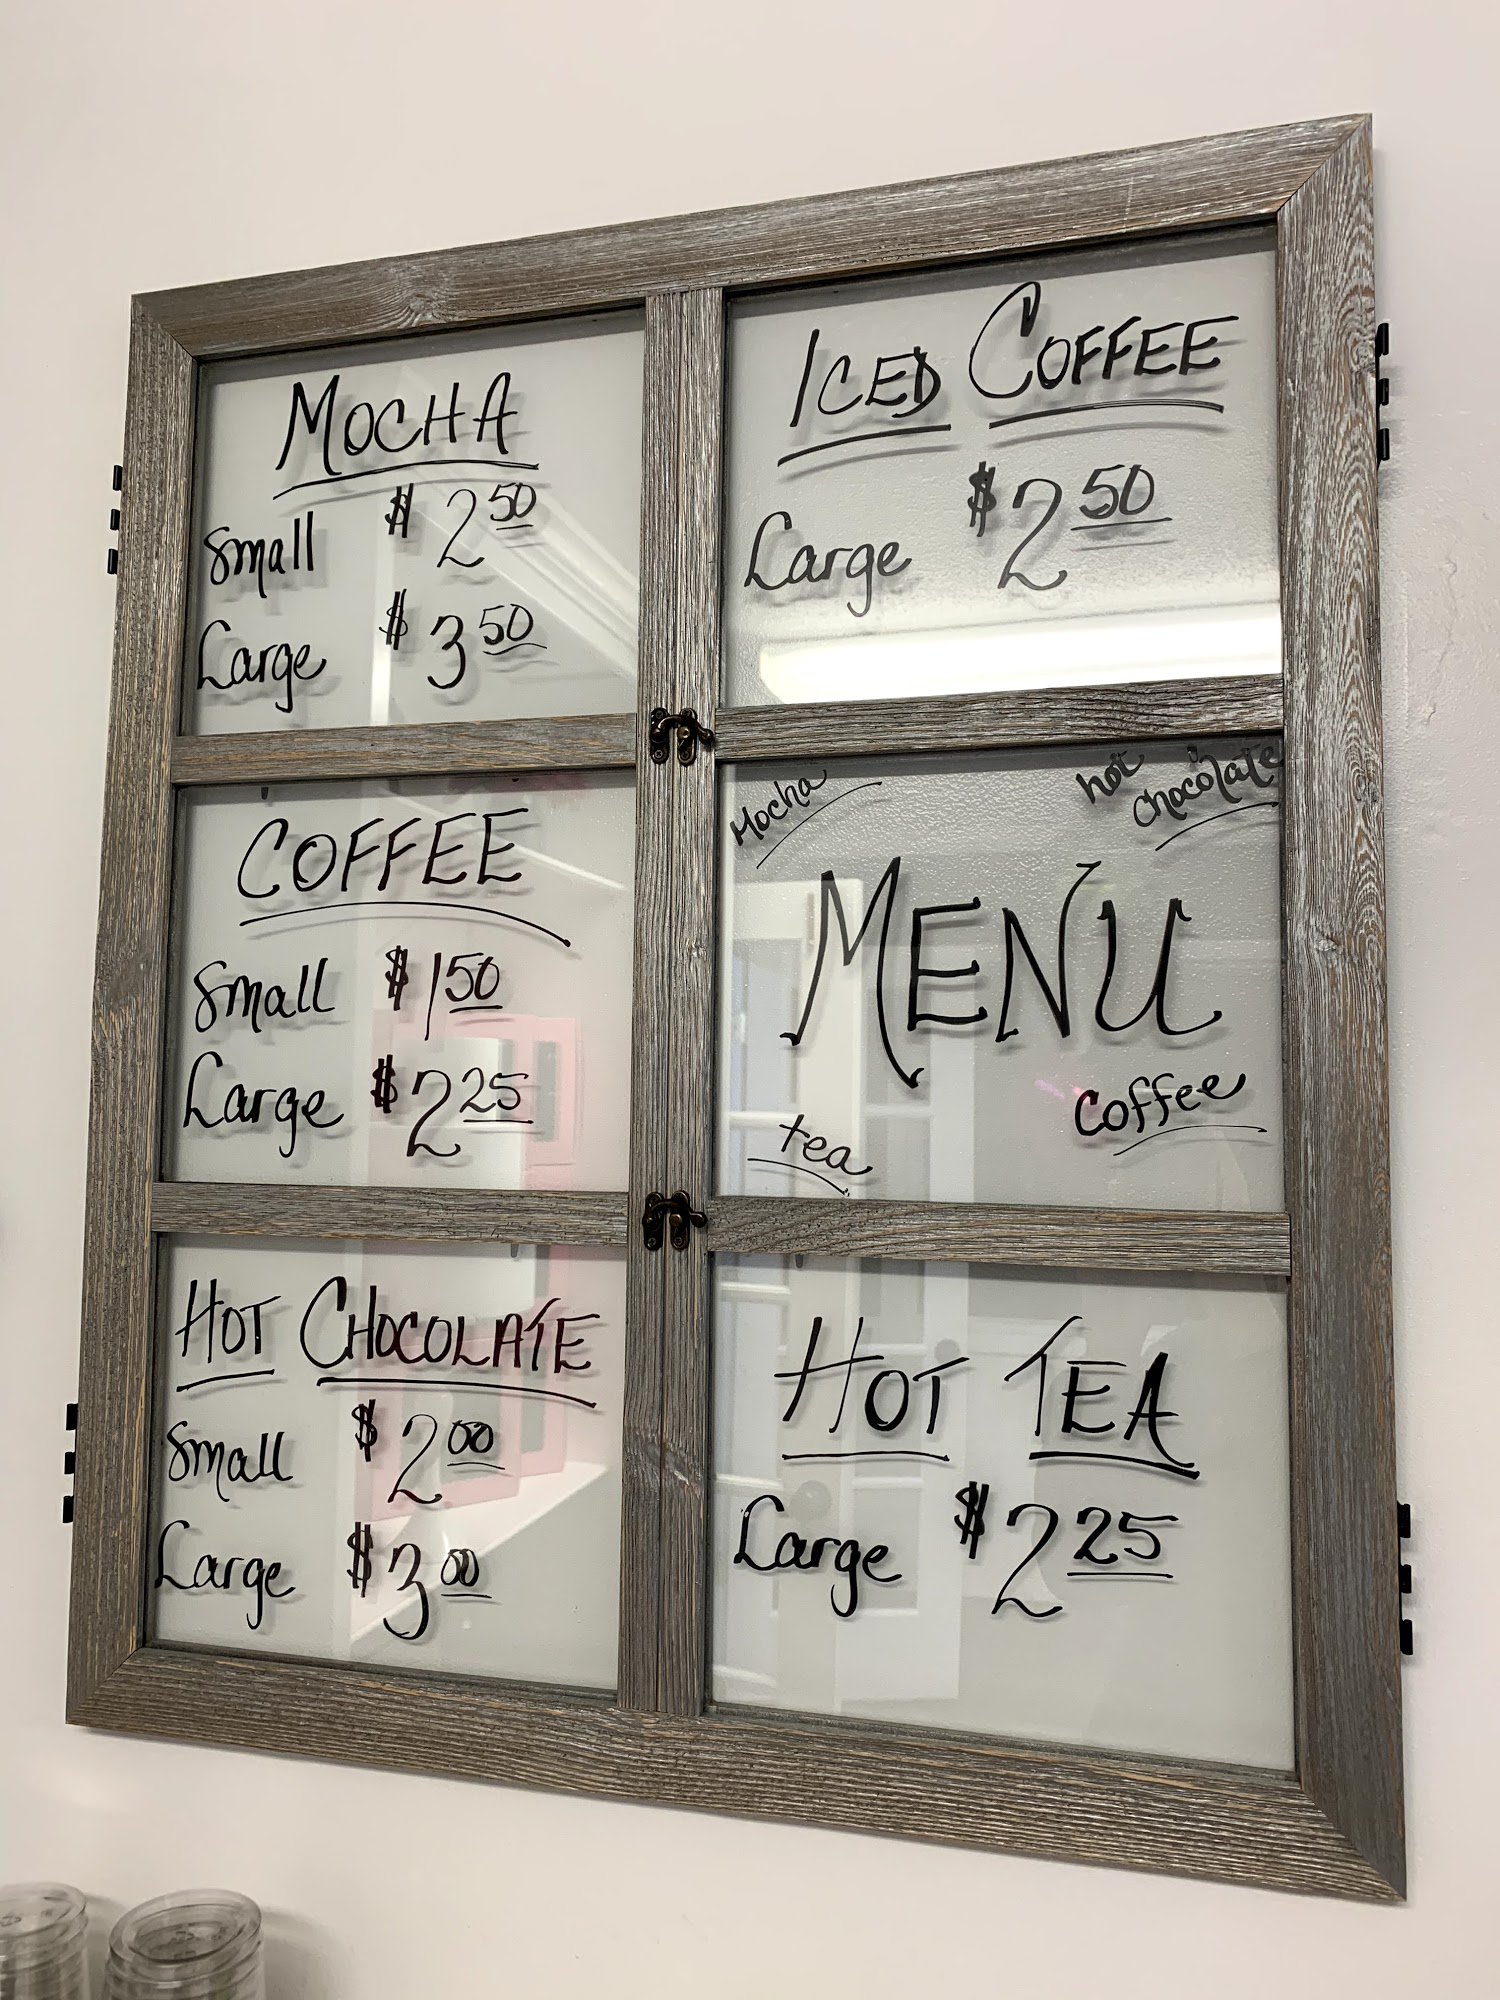 MOCHA
Small $2.50
Large $3.50
ICED COFFEE
Large $2.50
COFFEE
Small $1.50
Large $2.25
Mocha
hot
chocolate
MENU
coffee
tea
HOT CHOCOLATE
Small $2.00
Large $3.00
HOT TEA
Large $2.25